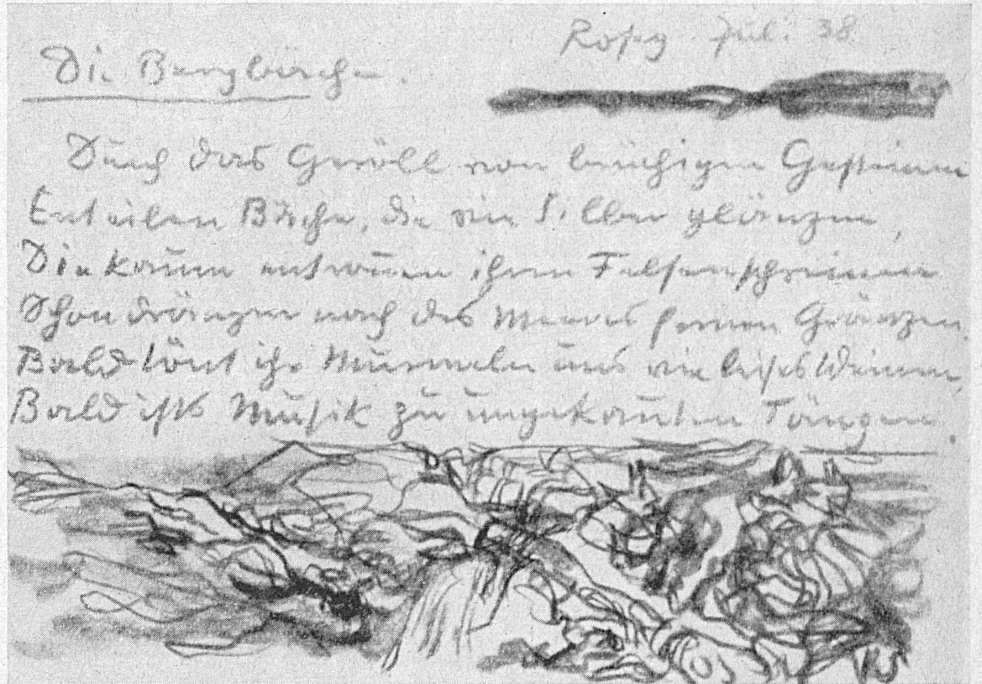 Jul. 38
Die Bergbäche.
Durch das Geröll von brüchigen Gesteinen
Enteilen Bäche, die wie Silber glänzen,
Die kaum entronnen ihren Felsenschreinen
Schon drängen nach des Meeres fernen Gränzen.
Bald tönt ihr Murmeln uns wie leises Weinen,
Bald ists Musik zu ungekannten Tänzen.